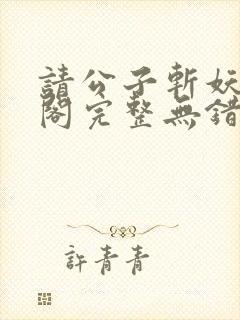 請公子斬妖
閣完整無錯
許青青